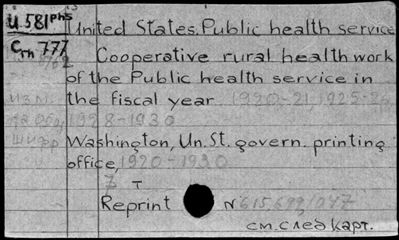 U 581phs United States. Public health service
Cm 777 Cooperative rural health work
of the Public health service in
the fiscal year 1920-21, 1925-26,
1928-1930
Washington, Un. St. govern. printing
office, 1920-1930
7 T
Reprint N 615
см. след карт.